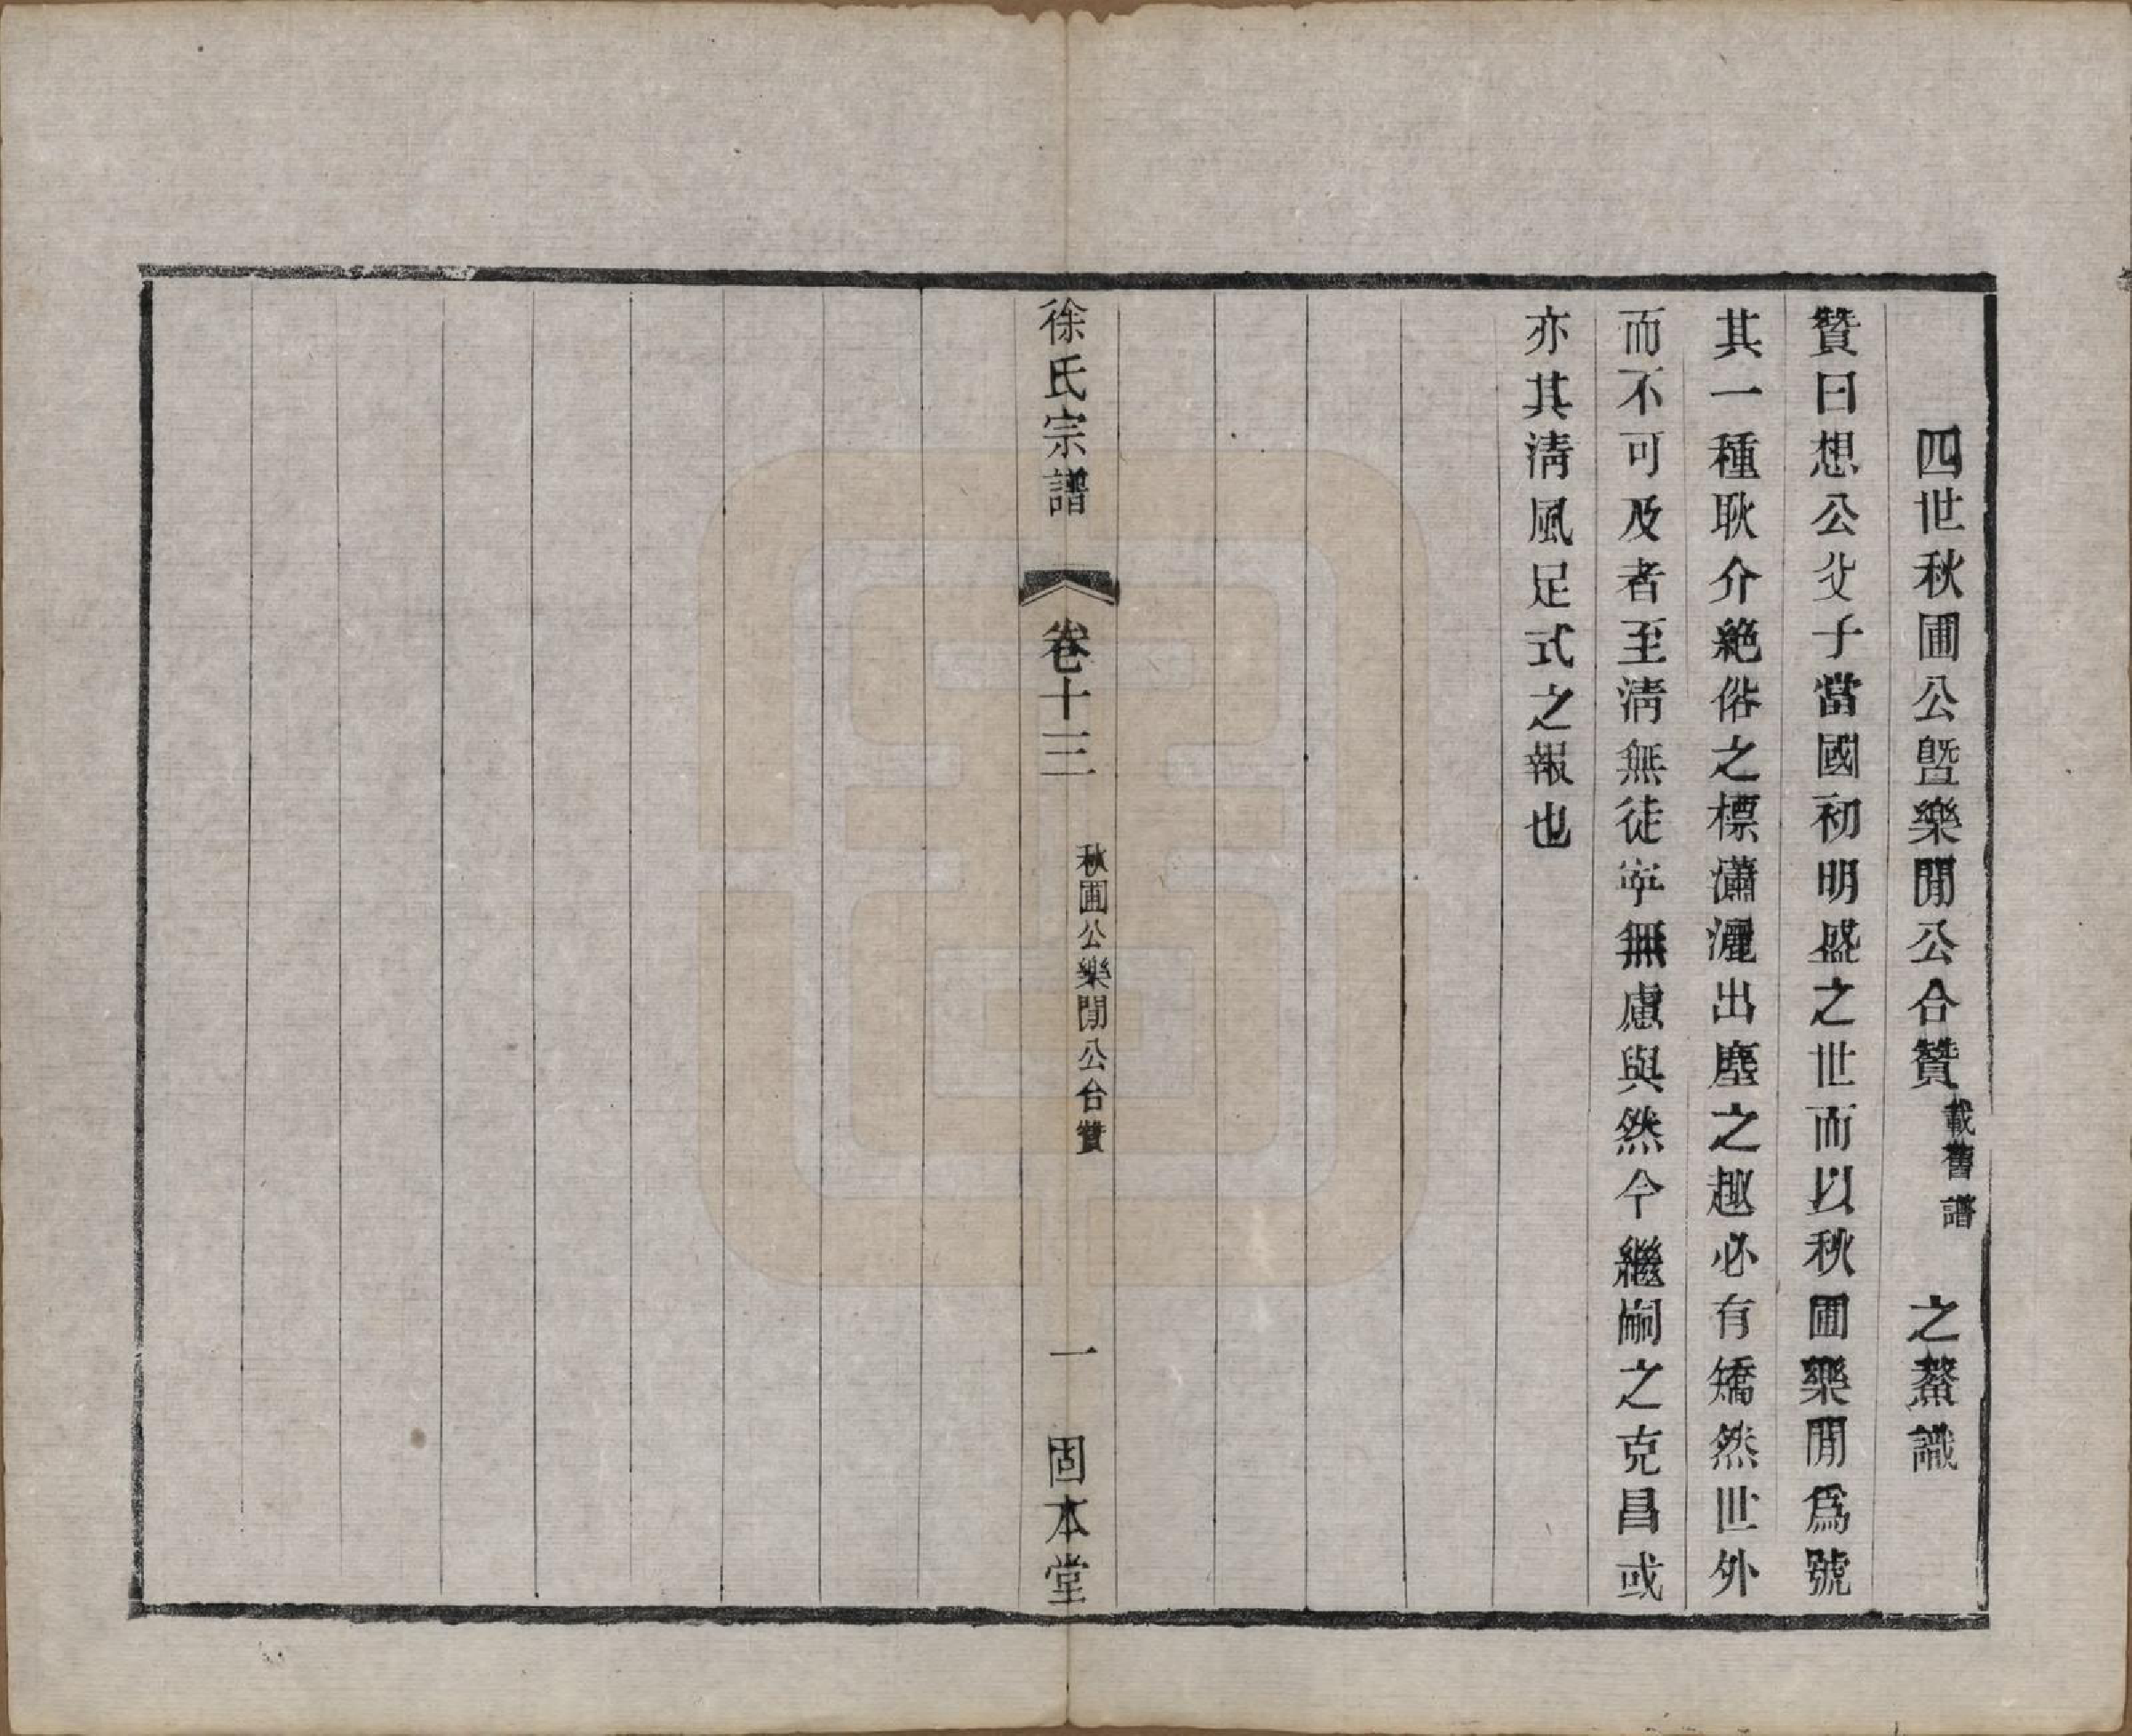 四世秋圃公暨樂閒公合贊載舊譜 之鰲識
贊曰想公父子當國初明盛之世而以秋圃樂閒爲號
其一種耿介絶俗之標瀟灑出塵之趣必有矯然世外
而不可及者至淸無徒寧無慮與然今繼嗣之克昌或
亦其淸風足式之報也
徐氏宗譜 卷十三 秋圃公樂閒公合贊 一 固本堂